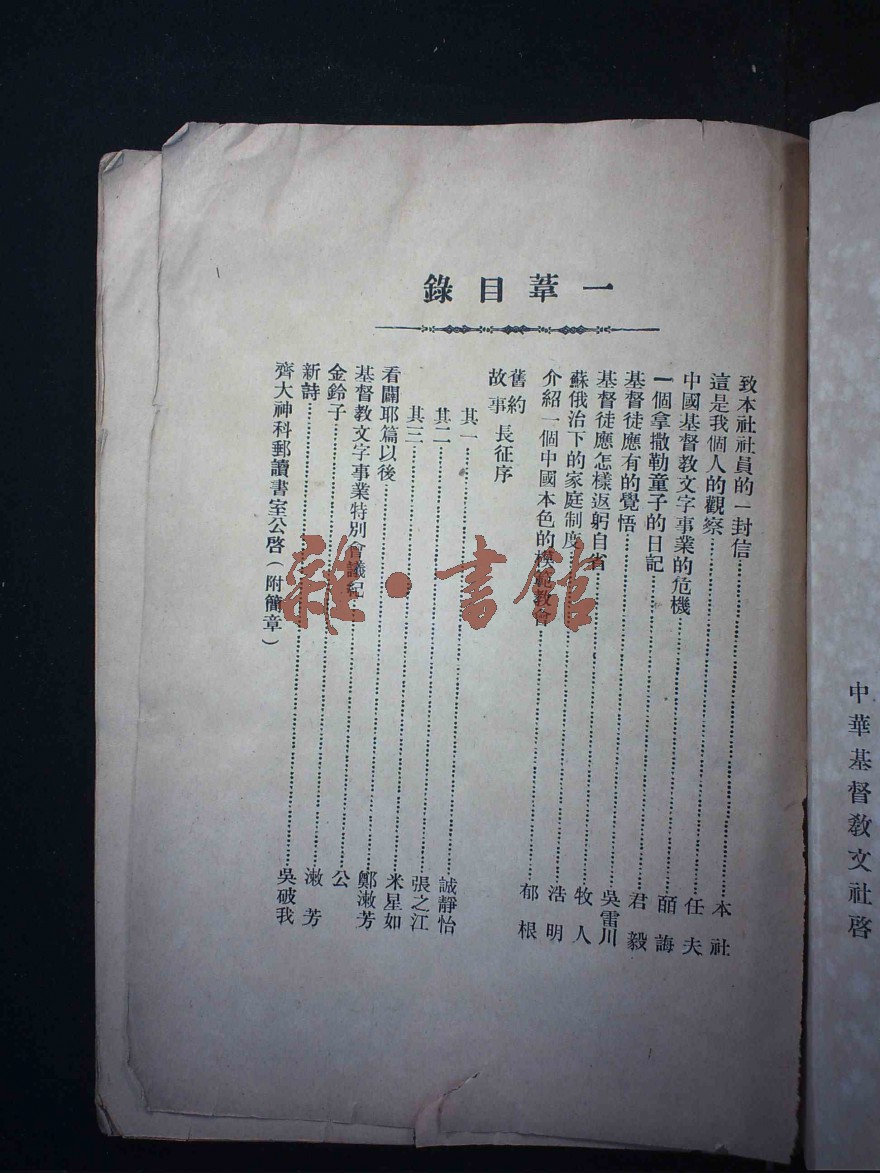 中華基督教文社啓
一葦目錄
致本社社員的一封信……本社
這是我個人的觀察……任夫
中國基督教文字事業的危機……皕誨
一個拿撒勒童子的日記……君毅
基督徒應有的覺悟……吳雷川
基督徒應怎樣返躬自省……牧人
蘇俄治下的家庭制度……浩明
介紹一個中國本色的模範教會……郁根
舊約故事 長征序
其一……誠靜怡
其二……張之江
其三……米星如
看闢耶篇以後……鄭漱芳
基督教文字事業特別會議紀……公
金鈴子……漱芳
新詩……吳破我
齊大神科郵讀書室公啓(附簡章)
雜·書館